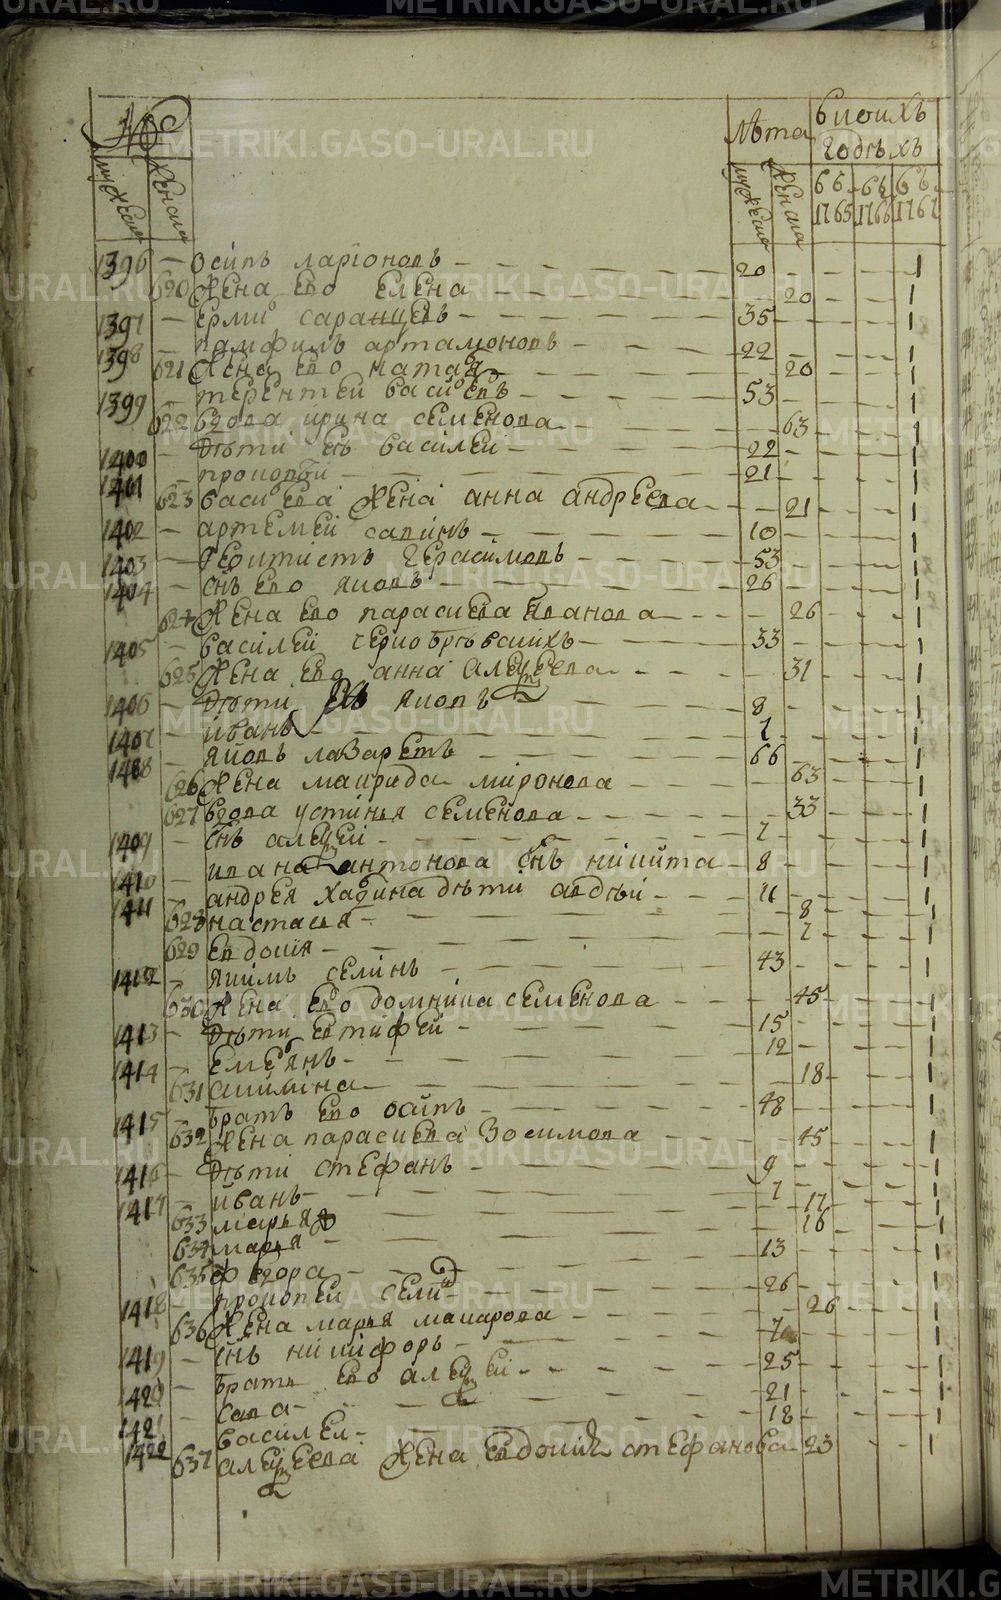 METRIKI.GASO-URAL.RU
№
лѣта
в коихъ
годѣхъ
мужеска
женска
мужеска
женска
въ 1765
въ 1766
въ 1767
1396 — осипъ ларионовъ — 20 — 1
620 жена ево елена — 20 — 1
1397 — саранцевъ — 35 — 1
1398 — памфилъ артамоновъ — 22 — 1
621 жена ево — 20 — 1
1399 — терентей василевъ — 53 — 1
622 вдова ирина семенова — 63 — 1
1400 — дѣти еѣ василей — 22 — 1
1401 — прокопей — 21 — 1
623 васильева жена анна андреева — 21 — 1
1402 — артемей савинъ — 10 — 1
1403 — герасимовъ — 53 — 1
1404 — снъ ево яковъ — 26 — 1
624 жена ево парасковья иванова — 26 — 1
1405 — василей — 33 — 1
625 жена ево анна алексеева — 31 — 1
1406 — дѣти яковъ — 8 — 1
1407 — иванъ — 7 — 1
1408 — яковъ — 66 — 1
626 жена мавра миронова — 63 — 1
627 вдова устинья семенова — 33 — 1
1409 — снъ алексей — 7 — 1
1410 — ивана антонова снъ никита — 8 — 1
1411 — андрея дѣти авдѣй — 11 — 1
628 настасья — 8 — 1
629 евдокия — 7 — 1
1412 — якимъ селинъ — 43 — 1
630 жена ево домника семенова — 45 — 1
1413 — дѣти евтифей — 15 — 1
1414 — емелянъ — 12 — 1
631 акилина — 18 — 1
1415 — братъ ево осипъ — 48 — 1
632 жена парасковья зосимова — 45 — 1
1416 — дѣти стефанъ — 9 — 1
1417 — иванъ — 7 — 1
633 марья — 17 — 1
634 марья — 16 — 1
635 федора — 13 — 1
1418 — прокопей селинъ — 26 — 1
636 жена марья макарова — 26 — 1
1419 — снъ никифоръ — 1
1420 — братъ ево алексей — 25 — 1
1421 — сава — 21 — 1
1422 — василей — 18 — 1
637 алексеева жена евдокия стефанова 23 — 1